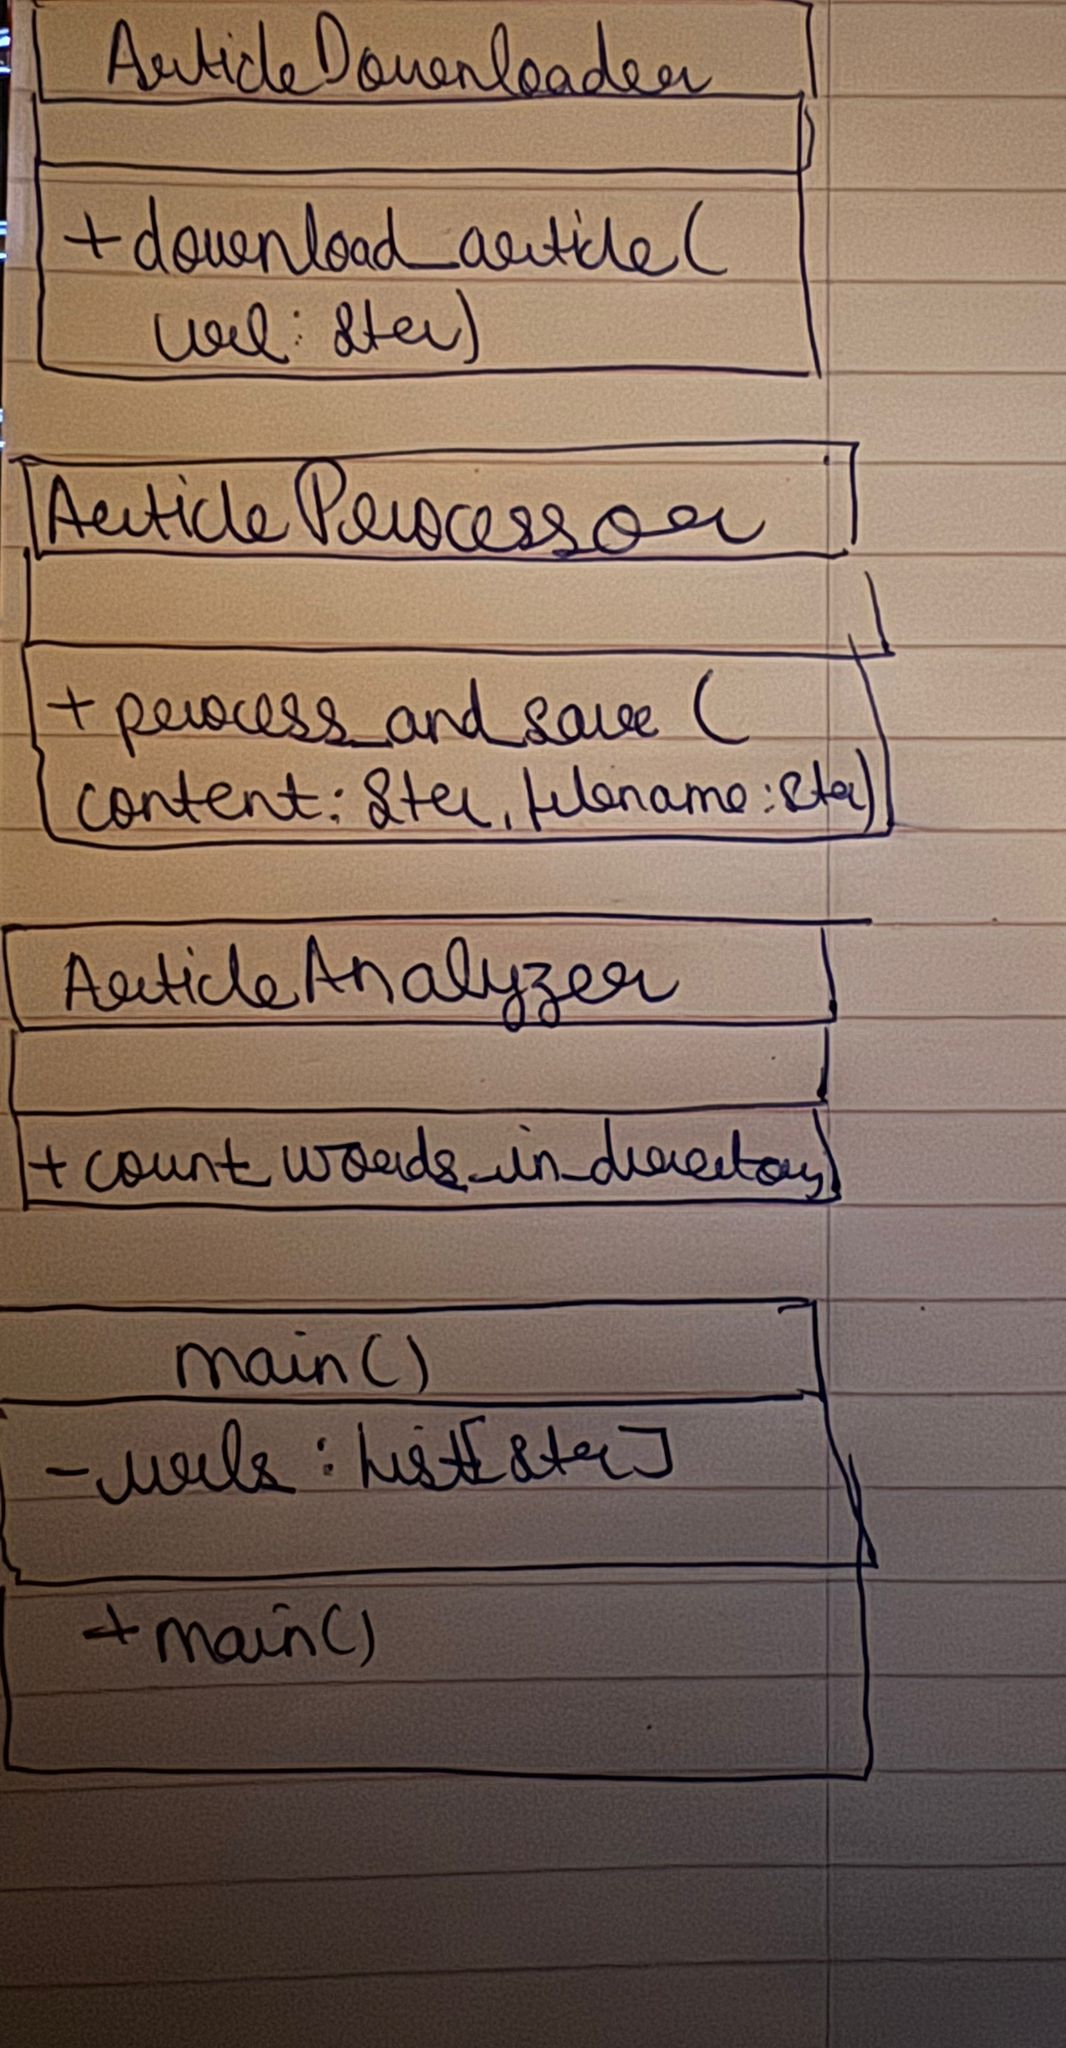 ArticleDownloader
+download_article(
url: str)
ArticleProcessor
+ process_and_save (
content: str, filename: str)
ArticleAnalyzer
+ count_words_in_directory)
main()
- urls : List[str]
+ main()